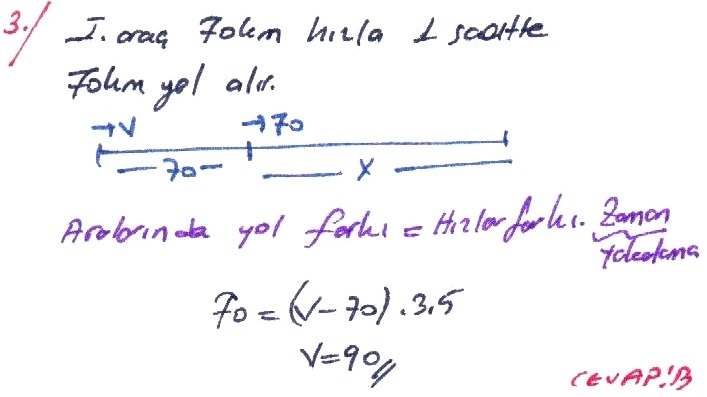 3./ I. araç 70km hızla 1 saatte
70km yol alır.
→V →70
70 X
Aralarında yol farkı = Hızlar farkı. Zaman
Yakalama
70 = (V-70).3,5
V=90//
CEVAP:B